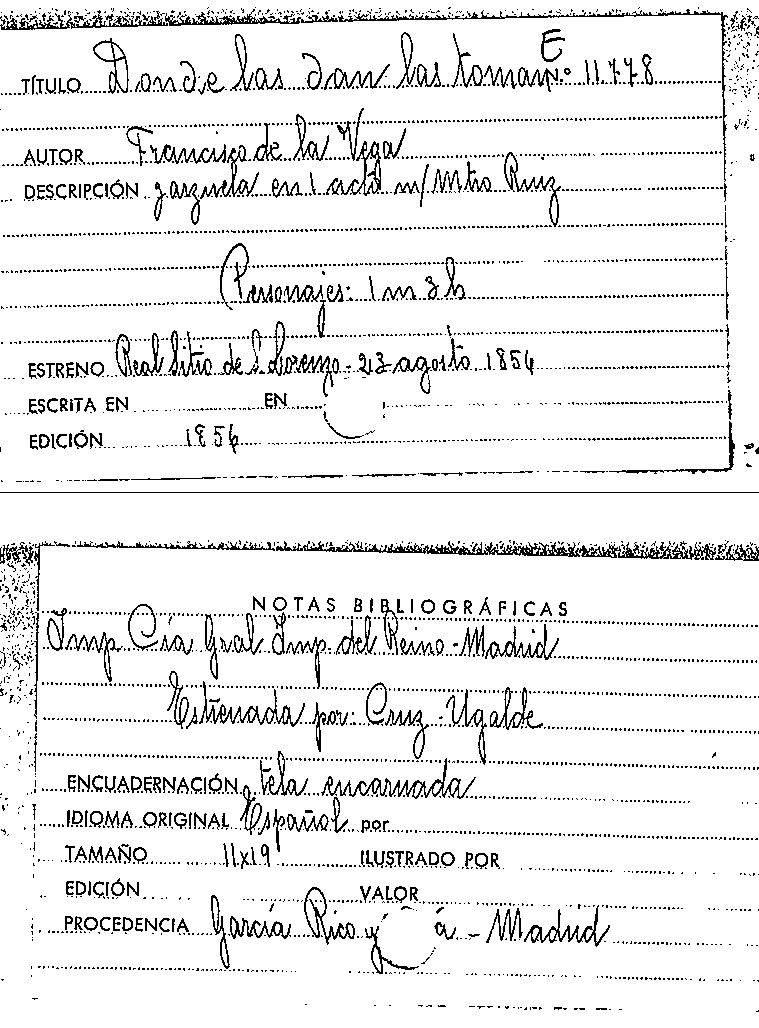 E
TÍTULO Donde las dan las toman N.º 11.778
AUTOR Francisco de la Vega
DESCRIPCIÓN zarzuela en 1 acto m/ Mtro Ruiz
Personajes: 1 m 3 h
ESTRENO Real Sitio de S. Lorenzo - 23 agosto 1856
ESCRITA EN EN
EDICIÓN 1856
NOTAS BIBLIOGRÁFICAS
Imp Cía Gral Imp. del Reino - Madrid
Estrenada por: Cruz - Ugalde
ENCUADERNACIÓN tela encarnada
IDIOMA ORIGINAL Español por
TAMAÑO 11x19 ILUSTRADO POR
EDICIÓN VALOR
PROCEDENCIA García Rico y a - Madrid